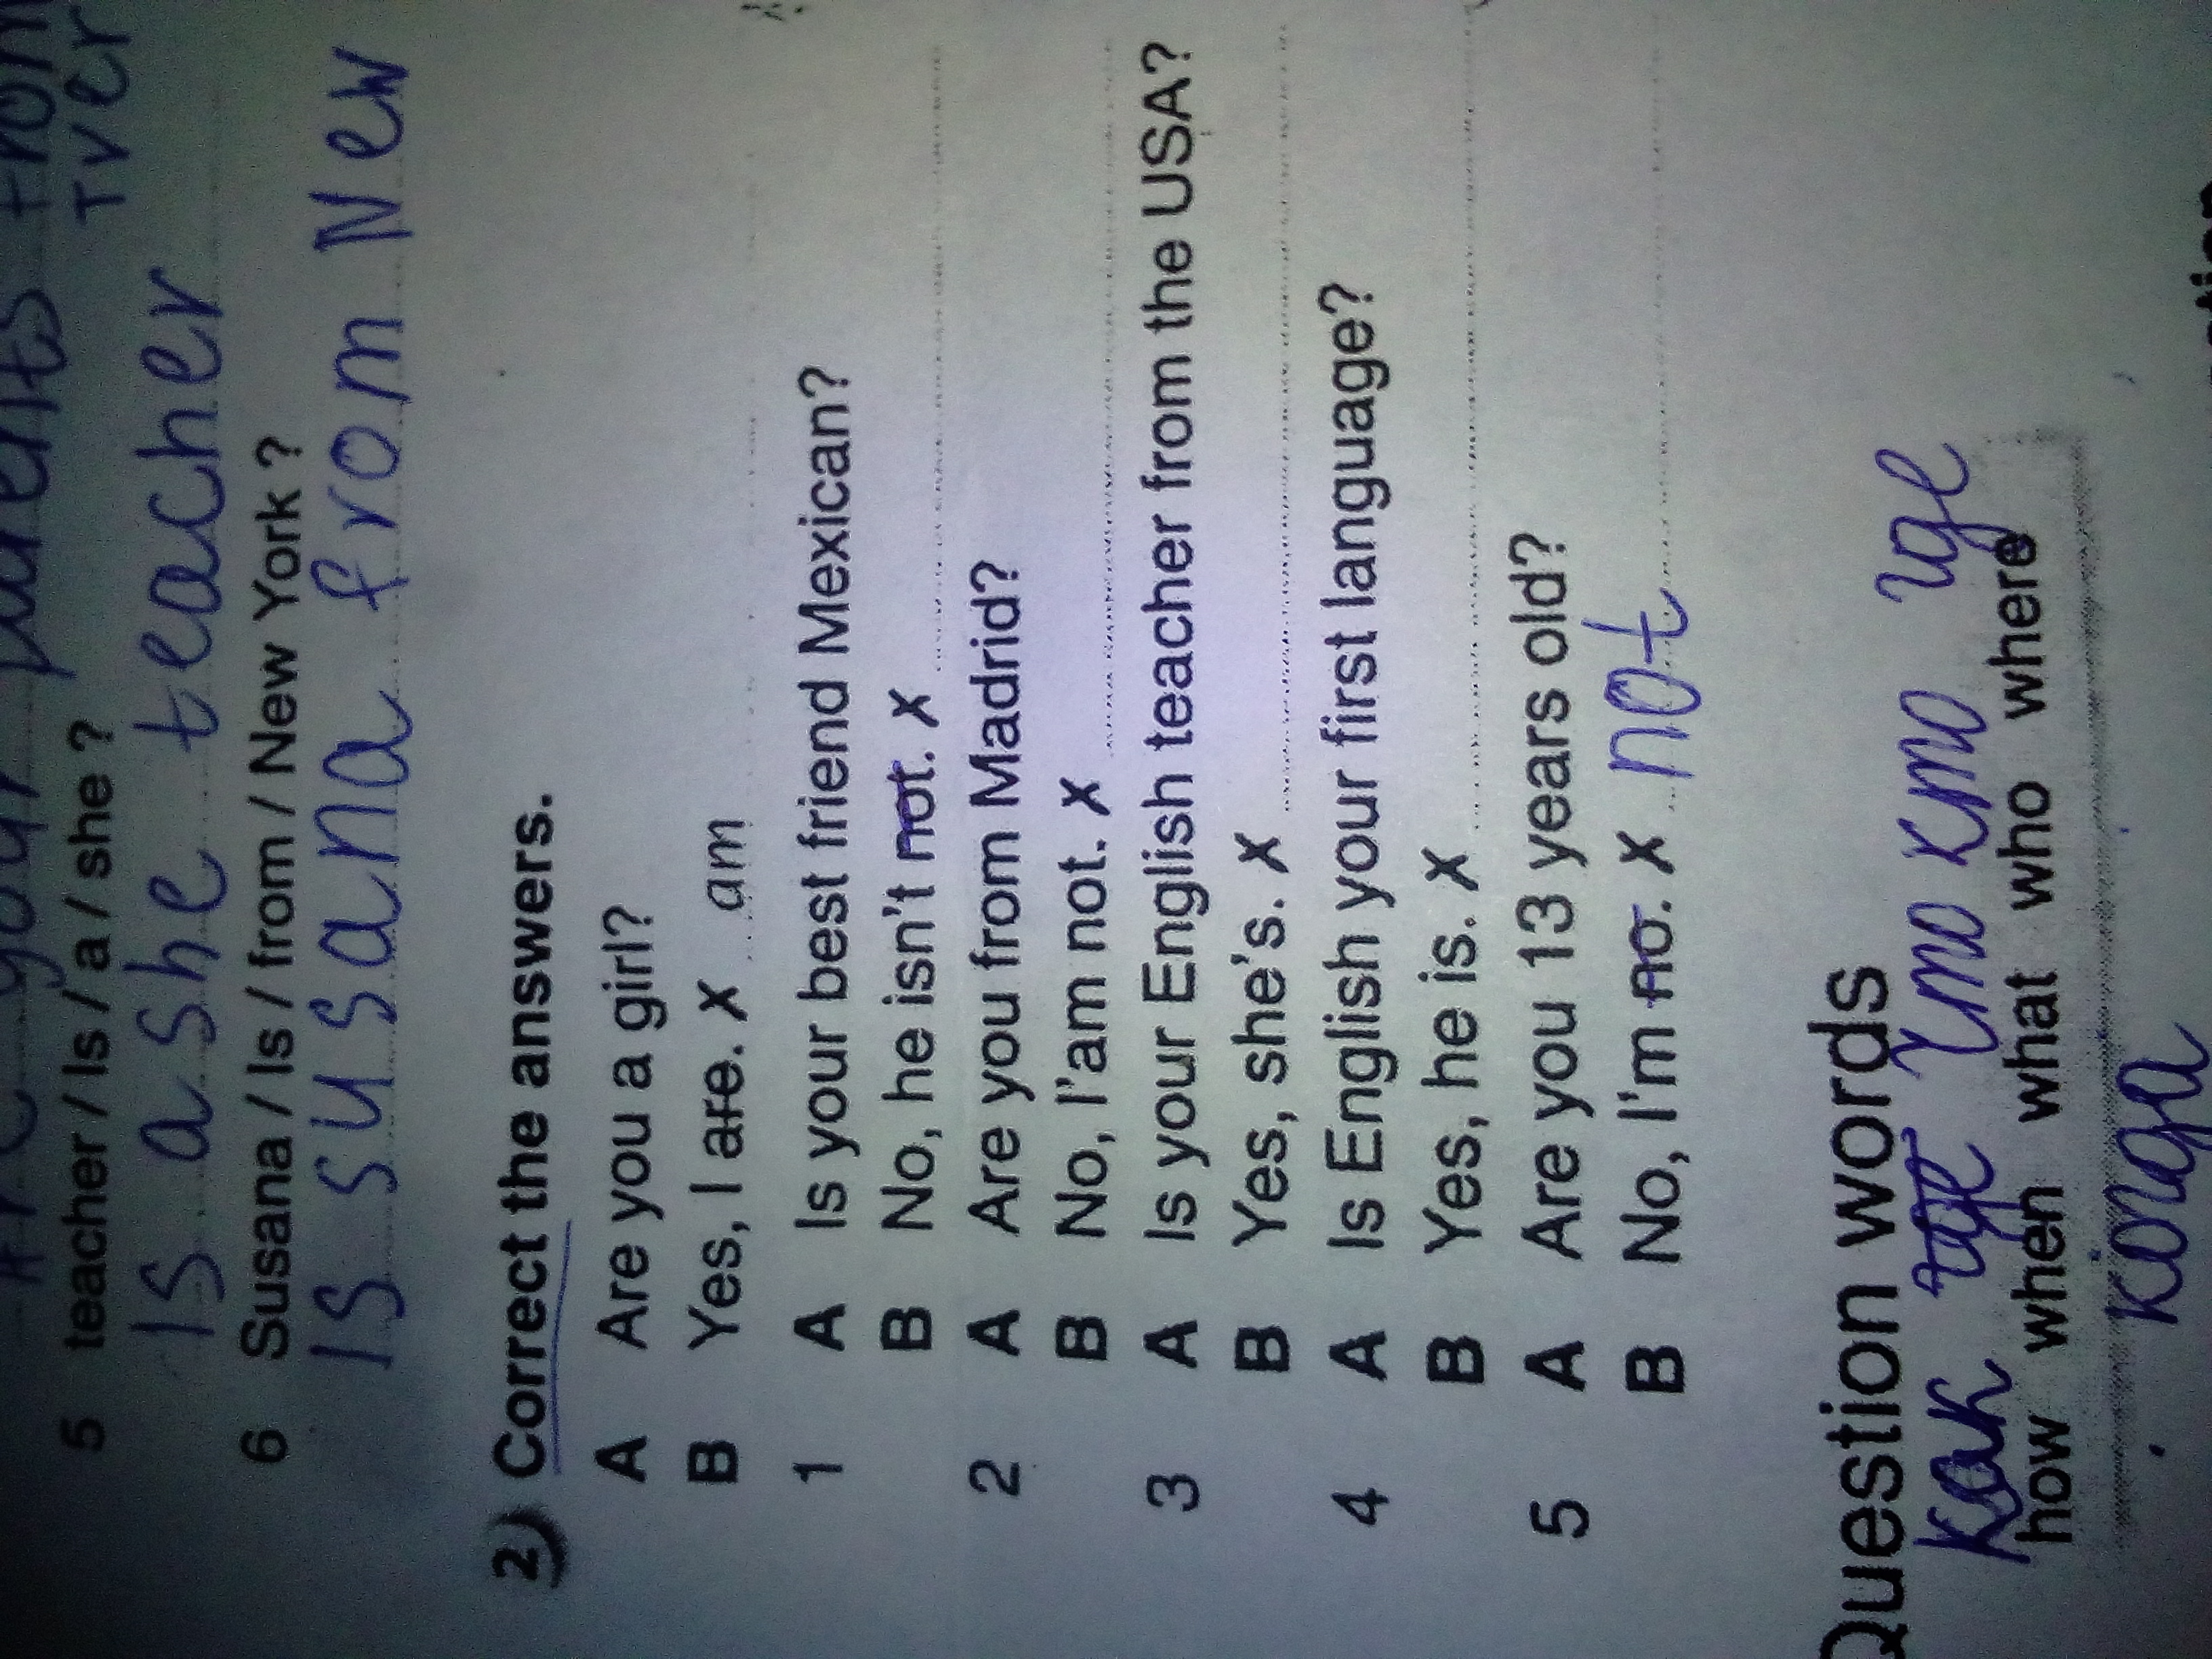 Are your parents from
Tver
5 teacher / Is / a / she ?
Is a she teacher
6 Susana / Is / from / New York ?
Is susana from New
2) Correct the answers.
A Are you a girl?
B Yes, I are. X am
1 A Is your best friend Mexican?
B No, he isn't not. X
2 A Are you from Madrid?
B No, I'am not. X
3 A Is your English teacher from the USA?
B Yes, she's. X
4 A Is English your first language?
B Yes, he is. X
5 A Are you 13 years old?
B No, I'm no. X not
Question words
как где что кто где
how when what who where
когда